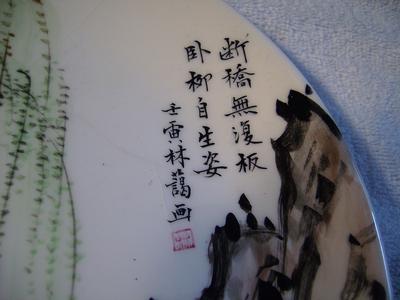 断橋無復板
卧柳自生姿
壬寅林藹画